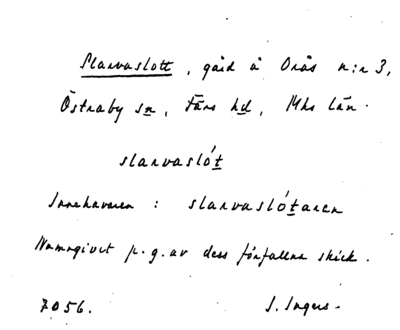 Slarvaslott, gård å Onås n:r 3,
Östraby sn, Färs hd, Mhs län.
slarvaslót
Innehavaren : slarvaslótaren
Namngivet p.g.av dess förfallna skick.
7056. S. Ingers.